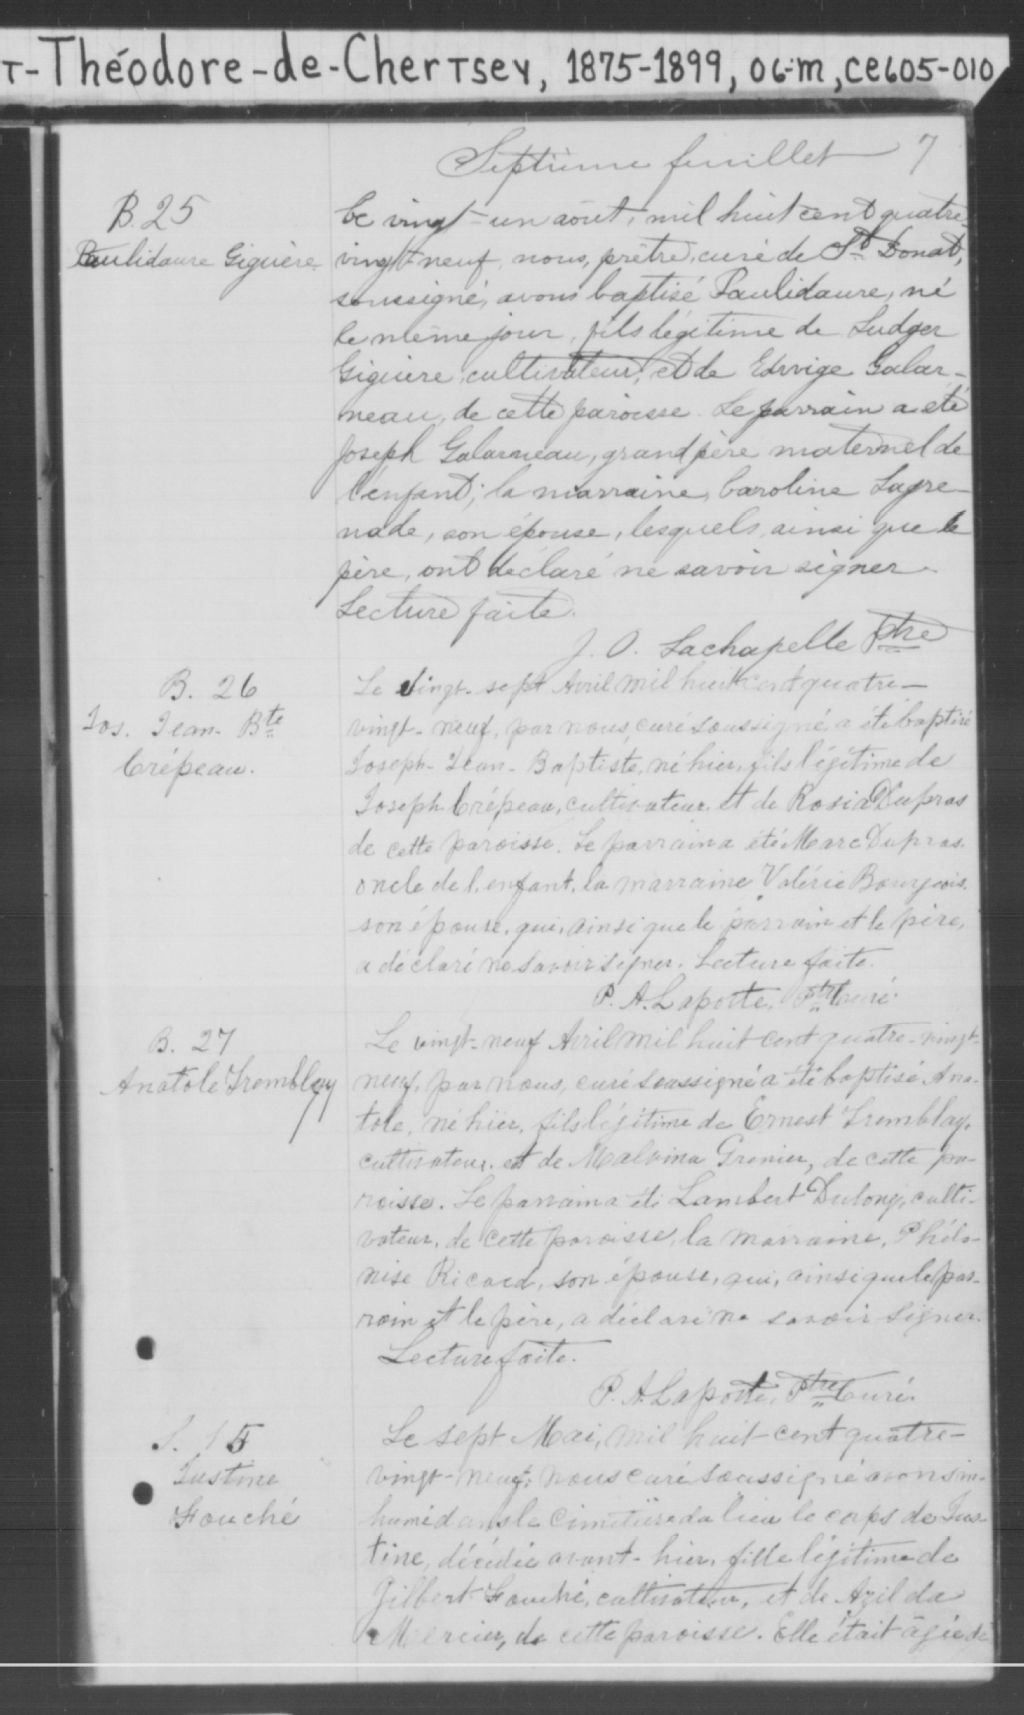 T-Théodore-de-Chertsey, 1875-1899, 06-m, CE605-010
Septième feuillet 7
B. 25
Paulidaure Giguère
Le vingt-un août, mil huit cent quatre-
vingt-neuf, nous, prêtre, curé de St Donat,
soussigné, avons baptisé Paulidaure, né
le même jour, fils légitime de Ludger
Giguère, cultivateur, et de Edvige Galar-
neau, de cette paroisse. Le parrain a été
Joseph Galarneau, grand père maternel de
l'enfant; la marraine, Caroline Lagre-
nade, son épouse, lesquels, ainsi que le
père, ont déclaré ne savoir signer.
Lecture faite.
J. O. Lachapelle Ptre
B. 26
Jos. Jean-Bte
Crépeau.
Le Vingt-sept Avril mil huit cent quatre-
vingt-neuf, par nous, curé soussigné a été baptisé
Joseph-Jean-Baptiste, né hier, fils légitime de
Joseph Crépeau, cultivateur, et de Rosia Dupras
de cette paroisse. Le parrain a été Marc Dupras.
oncle de l'enfant, la marraine Valérie Bourgeois.
son épouse, qui, ainsi que le parrain et le père,
a déclaré ne savoir signer. Lecture faite.
P. A. Laporte, Ptre Curé.
B. 27
Anatole Tremblay
Le vingt-neuf Avril mil huit cent quatre-vingt-
neuf, par nous, curé soussigné a été baptisé Ana-
tole, né hier, fils légitime de Ernest Tremblay,
cultivateur, et de Malvina Grenier, de cette pa-
roisse. Le parrain a été Lambert Dulong, culti-
vateur, de cette paroisse, la marraine, Philo-
mise Ricard, son épouse, qui, ainsi que le par-
rain et le père, a déclaré ne savoir signer.
Lecture faite.
P. A. Laporte, Ptre Curé.
S. 15
Justine
Fouché
Le sept Mai, mil huit cent quatre-
vingt-neuf, nous curé soussigné avons in-
humé dans le Cimetière du lieu le corps de Jus-
tine, décédée avant-hier, fille légitime de
Gilbert Fouché, cultivateur, et de Azilda
Mercier, de cette paroisse. Elle était âgée de